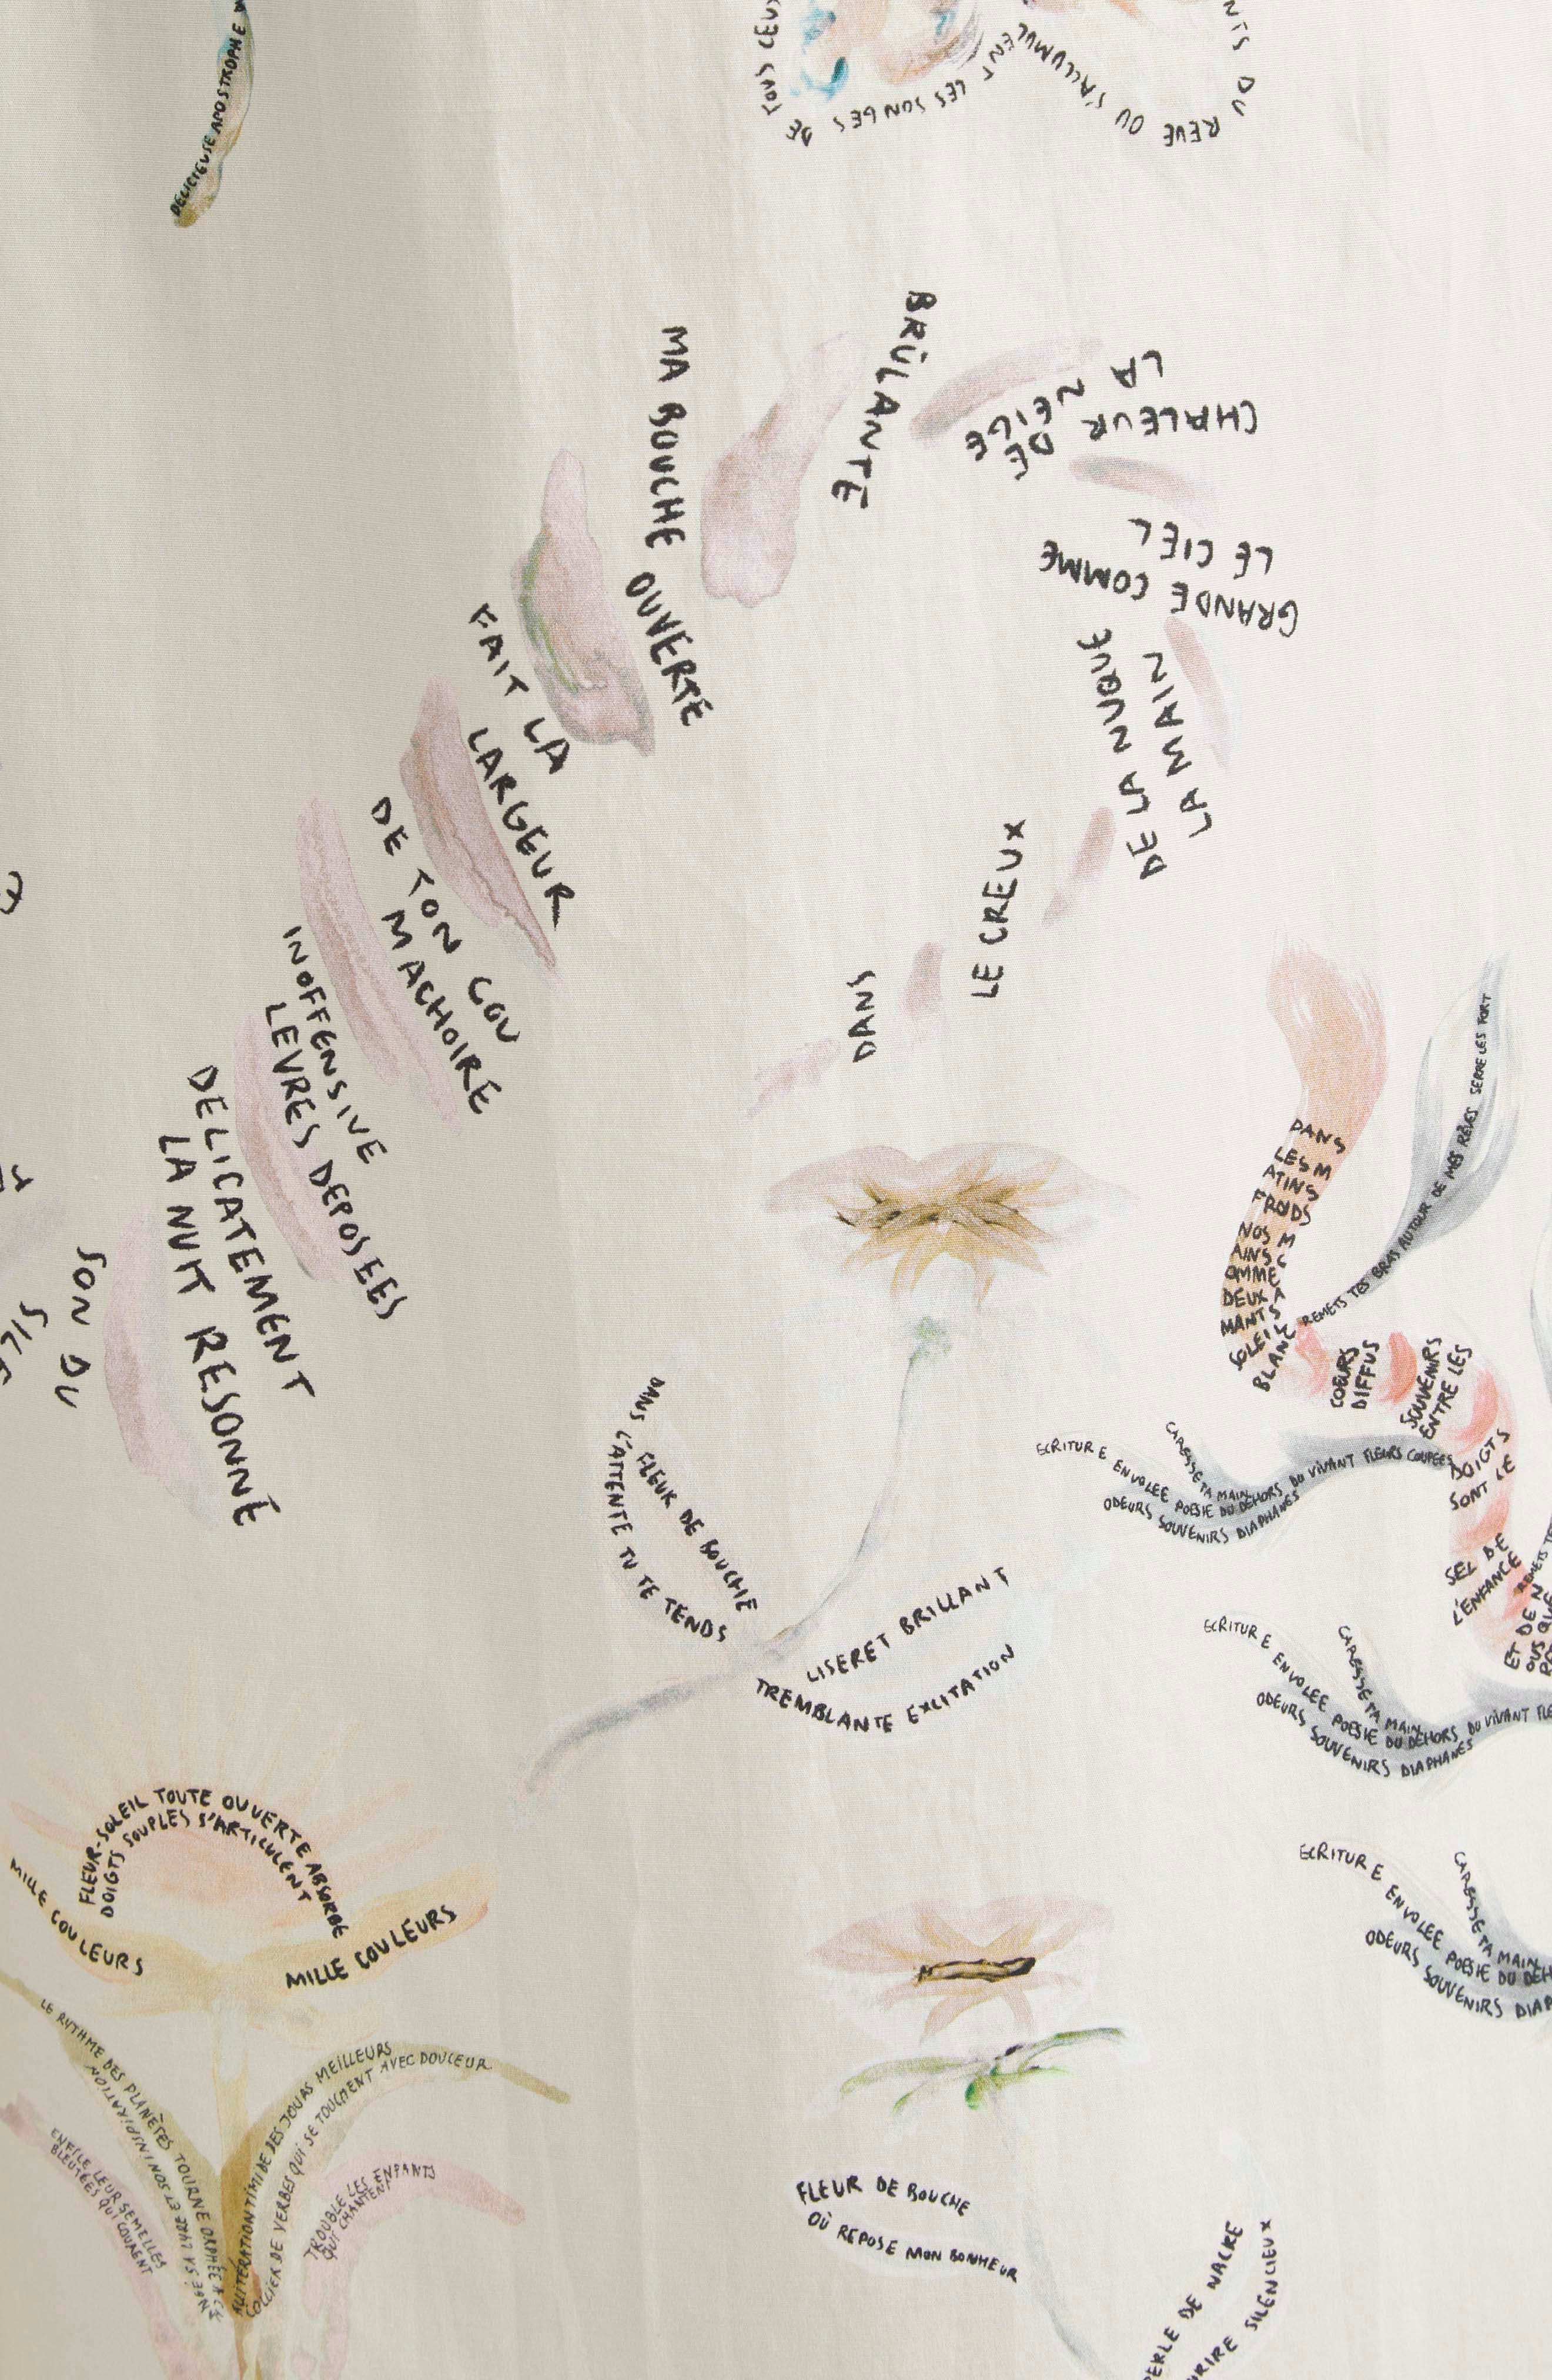 DÉLICIEUSE APOSTROPHE
DE TOUS CEUX
LES SONGES
S'ALLUMULENT
DU REVE OU
MA BOUCHE OUVERTE
BRÛLANTE
CHALEUR DE
LA NEIGE
GRANDE COMME
LE CIEL
LA MAIN
DE LA NUQUE
LE CREUX
DANS
FAIT LA
LARGEUR
DE TON COU
MACHOIRE
INOFFENSIVE
LEVRES DEPOSEES
DELICATEMENT
LA NUIT RESONNE
SON DU
DANS
LES M
ATINS
FROIDS
NOS M
AINS C
OMME
DEUX A
MANTS
SOLEIL
BLANC
REMETS TES BRAS AUTOUR DE MES RÊVES SERRE LES FORT
COEURS
DIFFUS
SOUVENIRS
ENTRE LES
DOIGTS
SONT LE
SEL DE
L'ENFANCE
ET DE N
ECRITURE ENVOLEE POESIE DU DEHORS DU VIVANT FLEURS COUPEES
CARESSE TA MAIN
ODEURS SOUVENIRS DIAPHANES
DANS FLEUR DE BOUCHE
L'ATTENTE TU TE TENDS
LISERET BRILLANT
TREMBLANTE EXCITATION
ECRITURE ENVOLEE POESIE DU DEHORS DU VIVANT FLE
CARESSE TA MAIN
ODEURS SOUVENIRS DIAPHANES
FLEUR-SOLEIL TOUTE OUVERTE ABSORBE
DOIGTS SOUPLES S'ARTICULENT
MILLE COULEURS
MILLE COULEURS
ECRITURE ENVOLEE POESIE DU DEH
CARESSE TA MAIN
ODEURS SOUVENIRS DIAP
LE RYTHME DES PLANÈTES TOURNE ORPHÉE A
SA LYRE ET SON INSPIRATION
ALLITÉRATION TIMIDE DES JOURS MEILLEURS
COLLIER DE VERBES QUI SE TOUCHENT AVEC DOUCEUR
ENFILE LEUR SEMELLES
BLEUTÉES QUI COURENT
TROUBLE LES ENFANTS
QUI CHANTENT
FLEUR DE BOUCHE
OÙ REPOSE MON BONHEUR
PERLE DE NACRE
RIRE SILENCIEUX